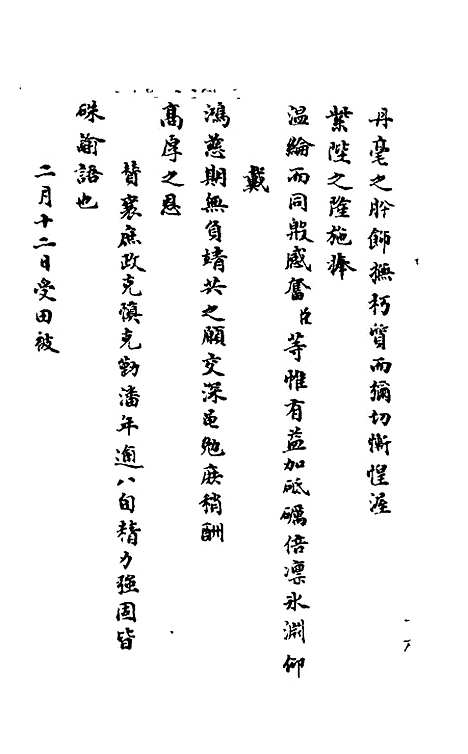 丹毫之肸飾撫朽質而彌切慚惶渥
紫陛之隆施捧
溫綸而同殷感奮臣等惟有益加砥礪倍凜氷淵仰
戴
鴻慈期無負靖共之願交深黽勉庶稍酬
高厚之恩
賛襄庶政克慎克勤潘年逾八旬精力強固皆
硃諭語也
二月十二日受田被